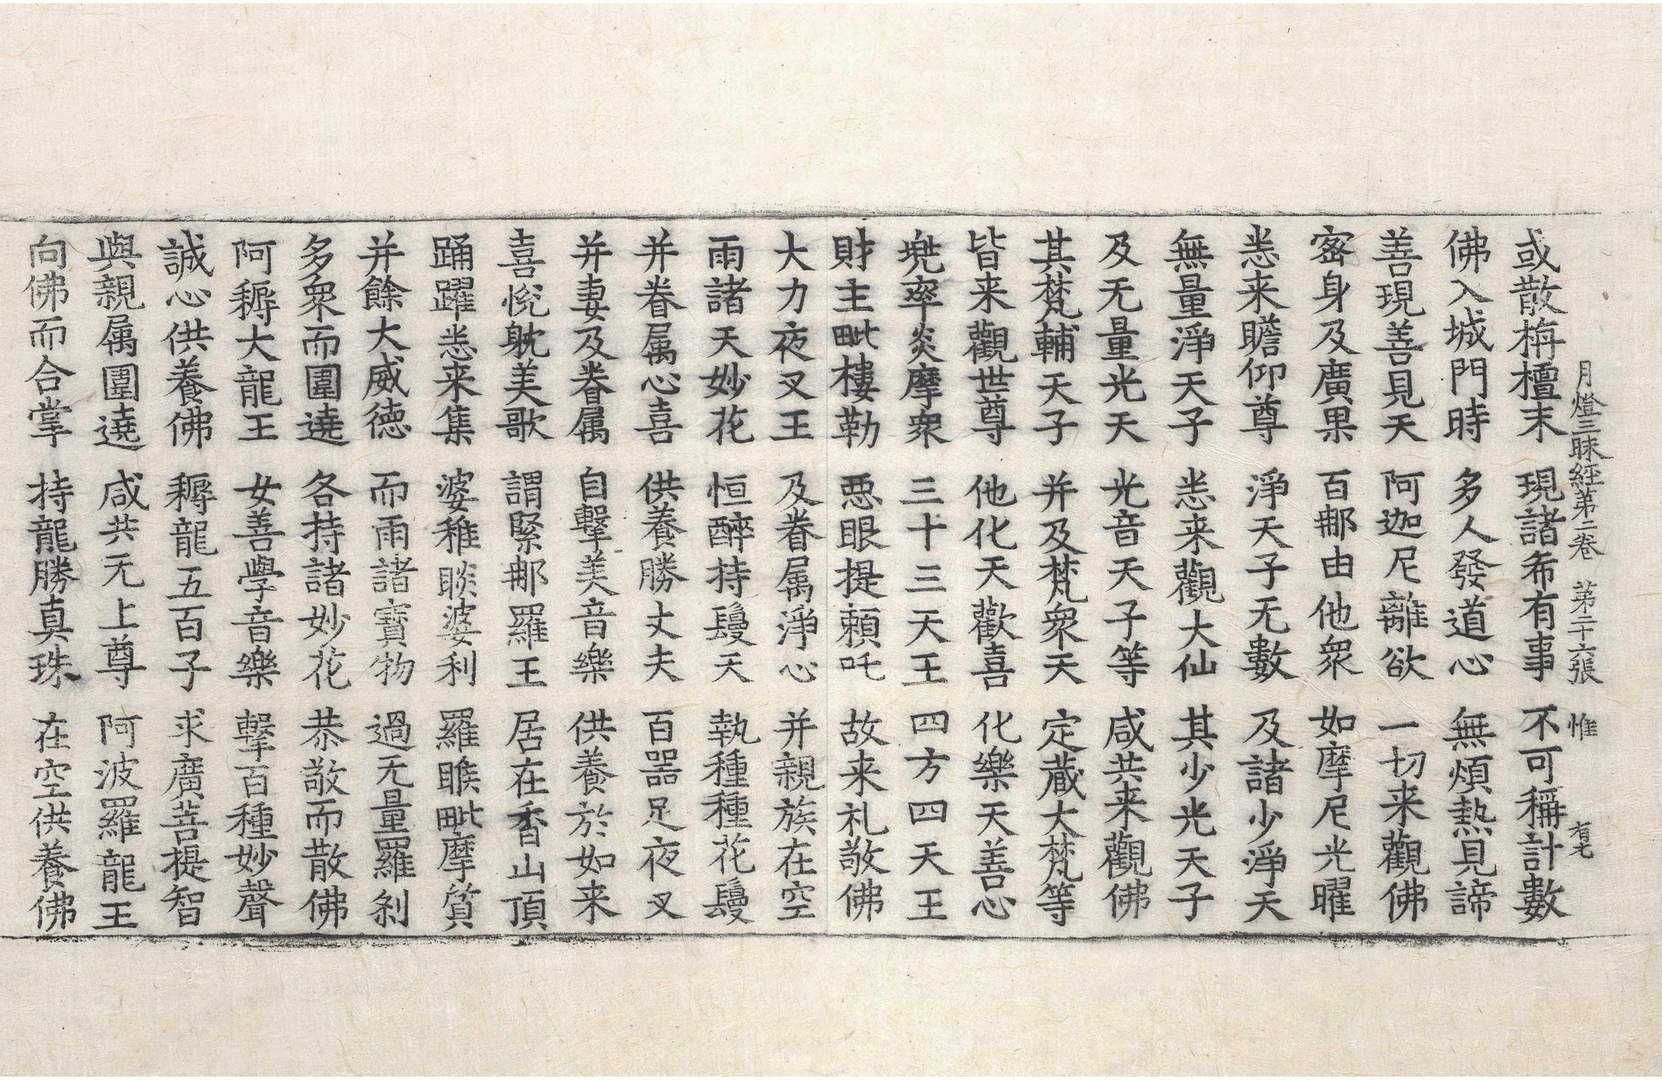 月燈三昧經第二卷 第二十六張 惟
或散栴檀末 現諸希有事 不可稱計數
佛入城門時 多人發道心 無煩熱見諦
善現善見天 阿迦尼離欲 一切来觀佛
密身及廣果 百郍由他衆 如摩尼光曜
悉来瞻仰尊 淨天子无數 及諸少淨天
無量淨天子 悉来觀大仙 其少光天子
及无量光天 光音天子等 咸共来觀佛
其梵輔天子 并及梵衆天 定蔵大梵等
皆来觀世尊 他化天歡喜 化樂天善心
兠率炎摩衆 三十三天王 四方四天王
財主毗樓勒 惡眼提頼吒 故来礼敬佛
大力夜叉王 及眷属淨心 并親族在空
雨諸天妙花 恒醉持鬘天 執種種花鬘
并眷属心喜 供養勝丈夫 百器足夜叉
并妻及眷属 自擊美音樂 供養於如来
喜悅躭美歌 謂緊郍羅王 居在香山頂
踊躍悉来集 婆稚睒婆利 羅睺毗摩質
并餘大威德 而雨諸寶物 過无量羅刹
多衆而圍遶 各持諸妙花 恭敬而散佛
阿耨大龍王 女善學音樂 擊百種妙聲
誠心供養佛 耨龍五百子 求廣菩提智
與親属圍遶 咸共无上尊 阿波羅龍王
向佛而合掌 持龍勝真珠 在空供養佛